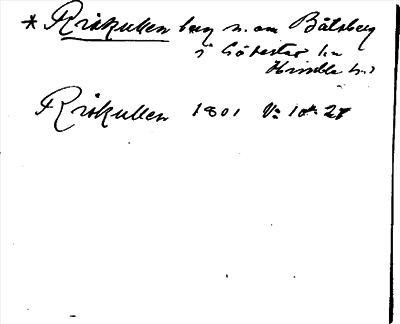 * Riskullen berg n. om Bålsberg
i Götestad sn
Riskullen 1801 V: 10h 27